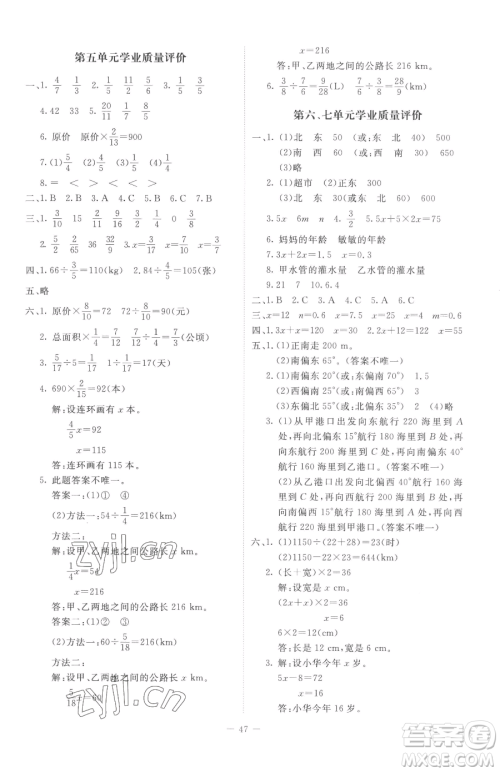 第五单元学业质量评价
一、1. 4/7 1/3 2. 8/15 5/9 3. 1/5 3/5
4. 42 33 5. 20/11 1/11
6. 原价 原价×2/13=900
7. (1)5/4 (2)4/5
8. = < > < >
二、1. A 2. B 3. B 4. B 5. C 6. B
三、1. 3/10 15 2/11 4/13 0 3/11
2. 2/5 2/65 36 3/32 9/11
四、1. 66÷3/5=110(kg) 2. 84÷4/5=105(张)
五、略
六、1. 原价×8/10=72 72÷8/10=90(元)
2. 总面积×1/4=7/12 7/12÷1/4=7/3(公顷)
3. 5/17÷5=1/17 1÷1/17=17(天)
4. 690×2/15=92(本)
解:设连环画有 x 本。
4/5x=92
x=115
答:连环画有 115 本。
5. 此题答案不唯一。
答案一:(1)② ④
(2)方法一:54÷1/4=216(km)
方法二:
解:设甲、乙两地之间的公路长 x km。
1/4x=54
x=216
答:甲、乙两地之间的公路长 216 km。
答案二:(1)① ③
(2)方法一:60÷5/18=216(km)
方法二:
解:设甲、乙两地之间的公路长 x km。
5/18x=60
x=216
答:甲、乙两地之间的公路长 216 km。
6. 3/8÷1/3=9/8(L) 3/8÷3/28=7/2(km)
第六、七单元学业质量评价
一、1. (1)北 东 50 (或:东 北 40)
(2)南 西 60 (或:西 南 30)
(3)略
2. (1)超市 (2)正东 300
(3)北 东 30(或东 北 60) 600
3. 5x 6m n 4. x 13.5
5. 4 2
6. 妈妈的年龄 敏敏的年龄
7. 3x+2=10.3
8. 甲水管的灌水量 乙水管的灌水量
9. 21 7 10. 6.4
二、1. B 2. C 3. A 4. C 5. C 6. B
三、x=12 x=4 x=5 m=0.6
四、1. 3x+x=120 x=30 2. 2x+12=122 x=55
五、1. (1)正南走 200 m。
(2)南偏东 65°。(答案不唯一)
2. (1)北偏东 20°(或:东偏北 70°) 1.5
(2)西偏南 25°(或:南偏西 65°) 1
(3)东偏南 60°(或:南偏东 30°) 2 (4)略
3. (1)从甲港口出发,向东航行 180 海里到 A 处,再向北偏东 15°航行 220 海里到 B 处,再向东航行 160 海里到乙港口。(答案不唯一)
(2)从乙港口出发,向西航行 160 海里到 B 处,再向南偏西 15°航行 220 海里到 A 处,再向西航行 180 海里到甲港口。(答案不唯一)
六、1. (1)1150÷(22+28)=23(时)
(2)1150-22×23=644(km)
2. (长+宽)×2=36
解:设宽是 x m。
(2x+x)×2=36
x=6
6×2=12(m)
答:长是 12 m,宽是 6 m。
3. 解:设小华今年 x 岁。
5x-8=72
x=16
答:小华今年 16 岁。
47
zyjl.cn
zyjl.cn
答案圈